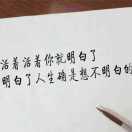 活着活着你就明白了
明白了人生确是想不明白的